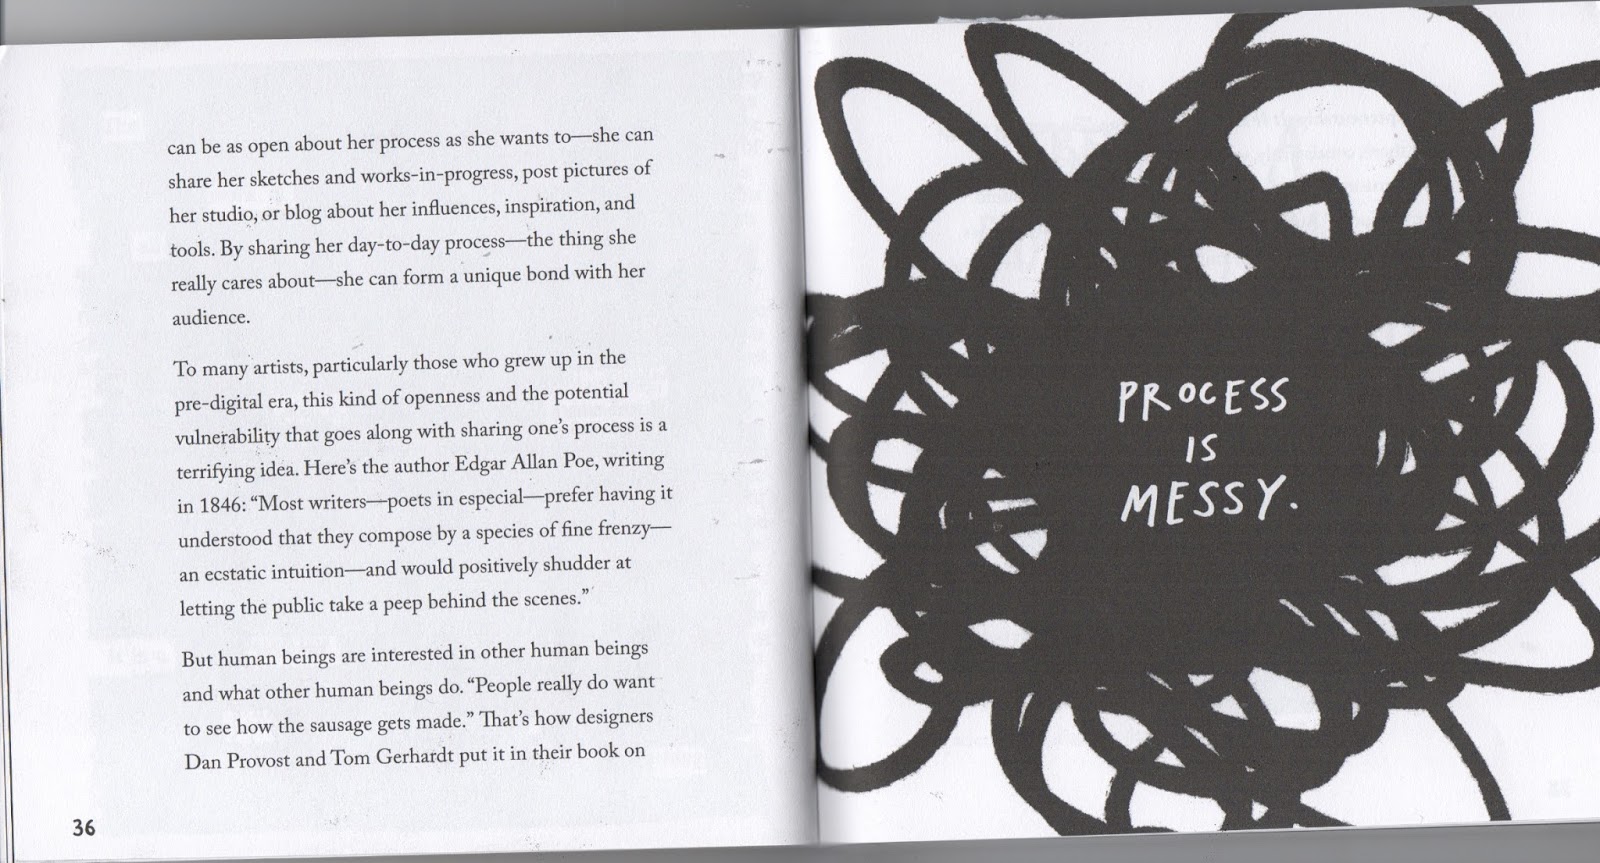 can be as open about her process as she wants to—she can
share her sketches and works-in-progress, post pictures of
her studio, or blog about her influences, inspiration, and
tools. By sharing her day-to-day process—the thing she
really cares about—she can form a unique bond with her
audience.
To many artists, particularly those who grew up in the
pre-digital era, this kind of openness and the potential
vulnerability that goes along with sharing one’s process is a
terrifying idea. Here’s the author Edgar Allan Poe, writing
in 1846: “Most writers—poets in especial—prefer having it
understood that they compose by a species of fine frenzy—
an ecstatic intuition—and would positively shudder at
letting the public take a peep behind the scenes.”
But human beings are interested in other human beings
and what other human beings do. “People really do want
to see how the sausage gets made.” That’s how designers
Dan Provost and Tom Gerhardt put it in their book on
36
PROCESS
IS
MESSY.